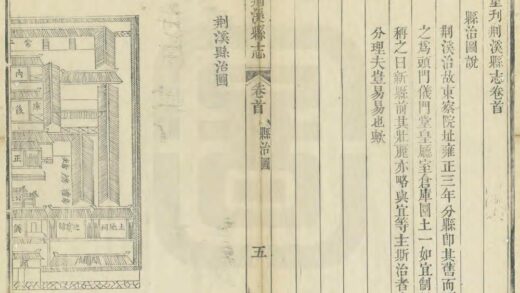 重刊荊溪縣志卷首
縣治圖說
荊溪治故東察院址雍正三年分縣即其舊而
之爲頭門儀門堂皇廳室倉庫圜土一如宜制
稱之曰新縣前其壯麗亦略與宜等主斯治者
分理夫豈易易也歟
荊溪縣志
卷首
縣治圖
五
荊溪縣治圖
土地祠
內
後
正